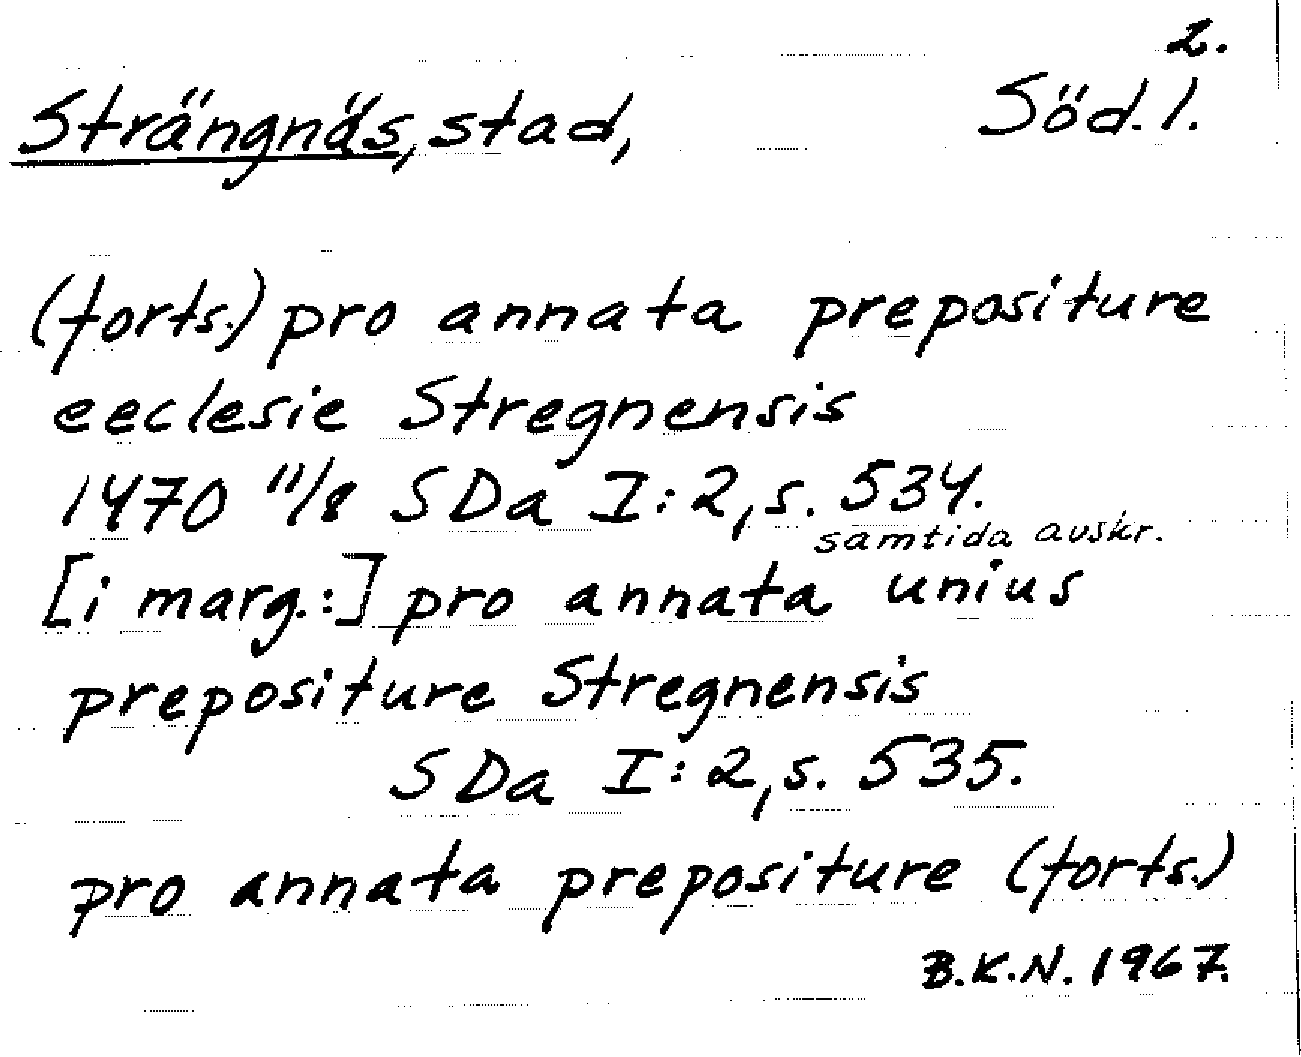 2.
Strängnäs, stad, Söd. l.
(forts.) pro annata prepositure
eeclesie Stregnensis
1470 11/8 SDa I:2, s. 534.
samtida avskr.
[i marg.:] pro annata unius
prepositure Stregnensis
SDa I:2, s. 535.
pro annata prepositure (forts.)
B.K.N. 1967.